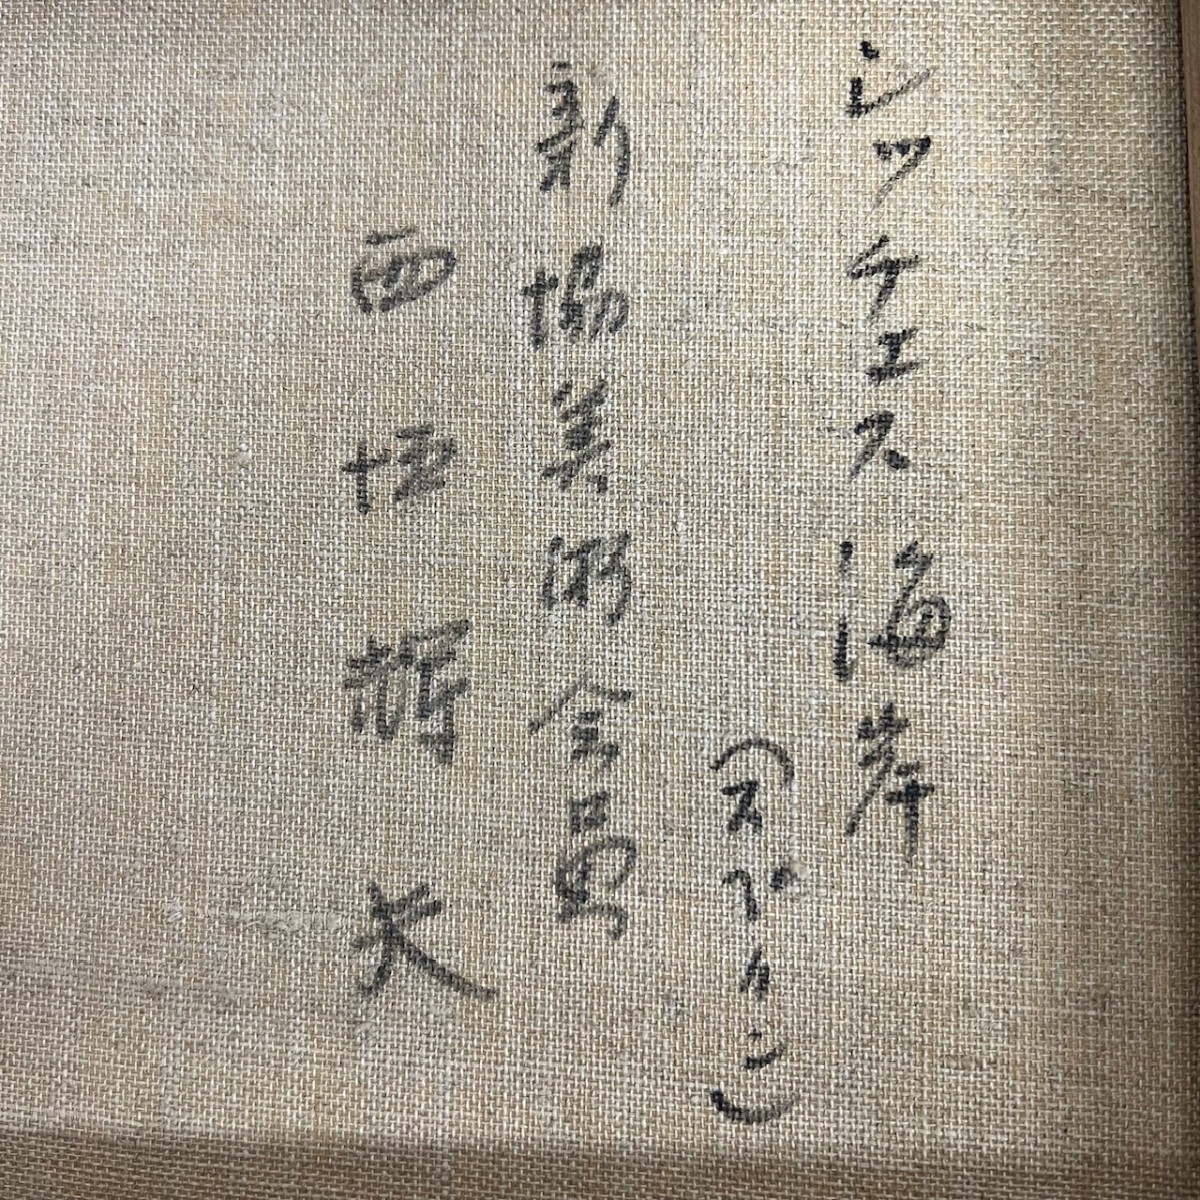 シッチェス海岸
（スペイン）
新協美術会員
西垣輝夫